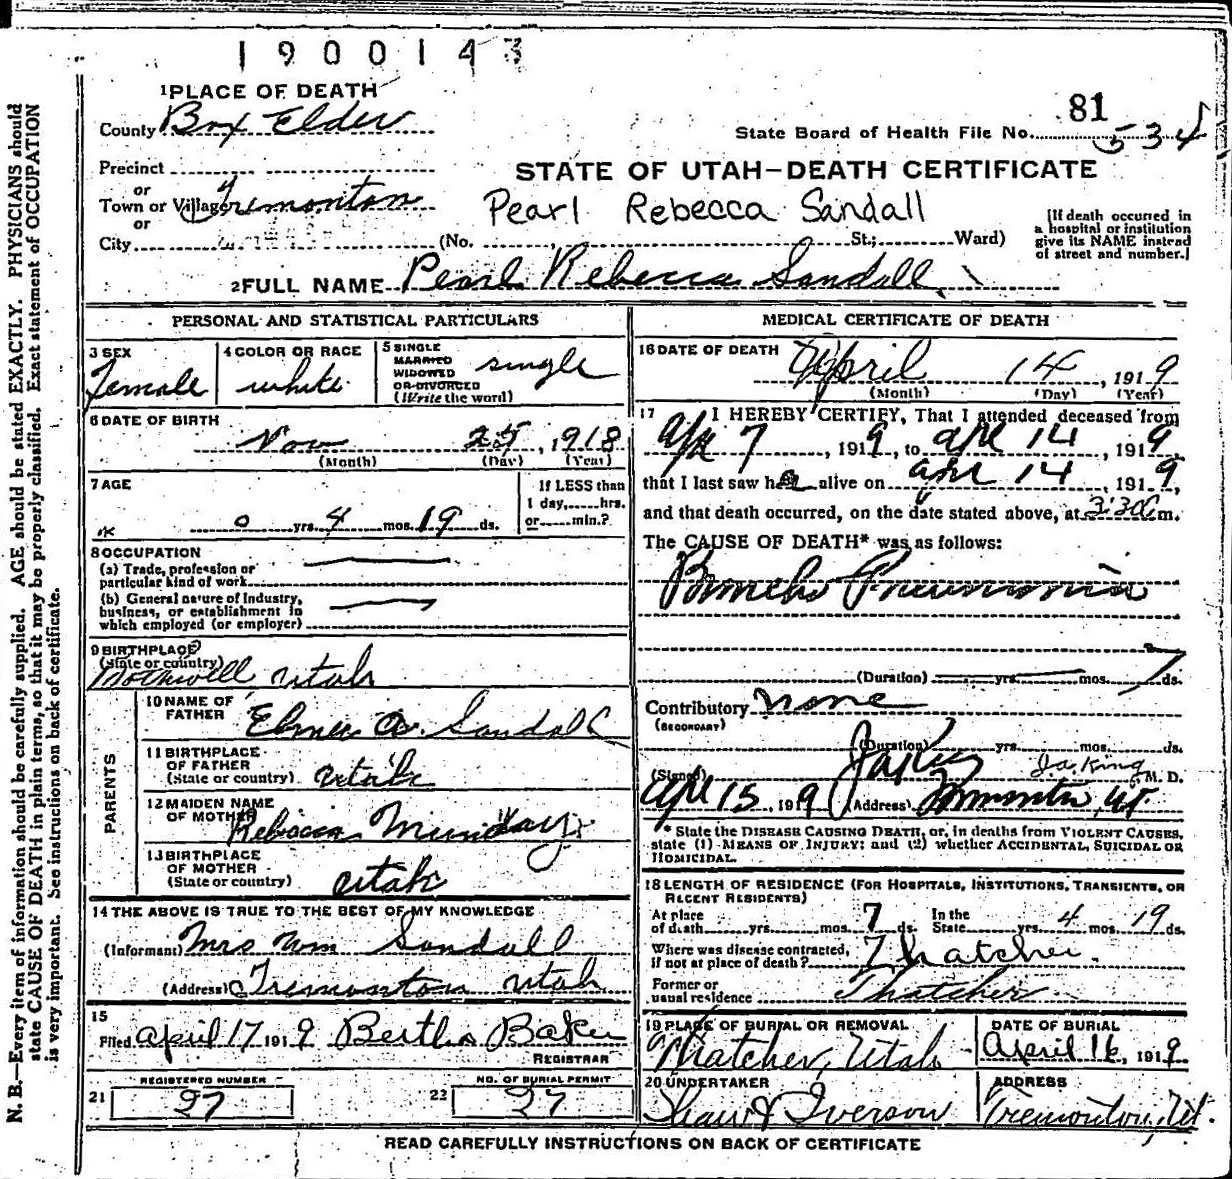 1900143
1 PLACE OF DEATH
County Box Elder
81
State Board of Health File No. 534
Precinct
or
Town or Village Tremonton
or
City
STATE OF UTAH—DEATH CERTIFICATE
Pearl Rebecca Sandall
(No. St.; Ward)
[If death occurred in
a hospital or institution
give its NAME instead
of street and number.]
2 FULL NAME Pearl Rebecca Sandall
PERSONAL AND STATISTICAL PARTICULARS
3 SEX
Female
4 COLOR OR RACE
white
5 SINGLE
MARRIED
WIDOWED
OR DIVORCED
(Write the word)
single
6 DATE OF BIRTH
Nov 25, 1918
(Month) (Day) (Year)
7 AGE
0 yrs. 4 mos. 19 ds.
If LESS than
1 day, hrs.
or min.?
8 OCCUPATION
(a) Trade, profession or
particular kind of work
(b) General nature of industry,
business, or establishment in
which employed (or employer)
9 BIRTHPLACE
(State or country)
Bothwell Utah
PARENTS
10 NAME OF
FATHER
Elmer A. Sandall
11 BIRTHPLACE
OF FATHER
(State or country) Utah
12 MAIDEN NAME
OF MOTHER Rebecca Munday
13 BIRTHPLACE
OF MOTHER
(State or country) Utah
14 THE ABOVE IS TRUE TO THE BEST OF MY KNOWLEDGE
(Informant) Mrs Wm Sandall
(Address) Tremonton Utah
15
Filed April 17 1919 Bertha Baker
REGISTRAR
REGISTERED NUMBER
21 27
NO. OF BURIAL PERMIT
22 27
MEDICAL CERTIFICATE OF DEATH
16 DATE OF DEATH April 14, 1919
(Month) (Day) (Year)
17 I HEREBY CERTIFY, That I attended deceased from
Apr 7, 1919, to Apr 14, 1919,
that I last saw her alive on Apr 14, 1919,
and that death occurred, on the date stated above, at 3:30 m.
The CAUSE OF DEATH* was as follows:
Broncho Pneumonia
(Duration) yrs. mos. 7 ds.
Contributory none
(SECONDARY)
(Duration) yrs. mos. ds.
(Signed) Ja King Ja. King M. D.
Apr 15, 1919 (Address) Tremonton, Ut.
* State the DISEASE CAUSING DEATH, or, in deaths from VIOLENT CAUSES,
state (1) MEANS OF INJURY; and (2) whether ACCIDENTAL, SUICIDAL OR
HOMICIDAL.
18 LENGTH OF RESIDENCE (FOR HOSPITALS, INSTITUTIONS, TRANSIENTS, OR
RECENT RESIDENTS)
At place
of death yrs. mos. 7 ds.
In the
State yrs. 4 mos. 19 ds.
Where was disease contracted,
if not at place of death? Thatcher.
Former or
usual residence Thatcher
19 PLACE OF BURIAL OR REMOVAL
Thatcher, Utah
DATE OF BURIAL
April 16, 1919
20 UNDERTAKER
Shaw & Iverson
ADDRESS
Tremonton, Ut.
READ CAREFULLY INSTRUCTIONS ON BACK OF CERTIFICATE
N. B.—Every item of information should be carefully supplied. AGE should be stated EXACTLY. PHYSICIANS should
state CAUSE OF DEATH in plain terms, so that it may be properly classified. Exact statement of OCCUPATION
is very important. See instructions on back of certificate.